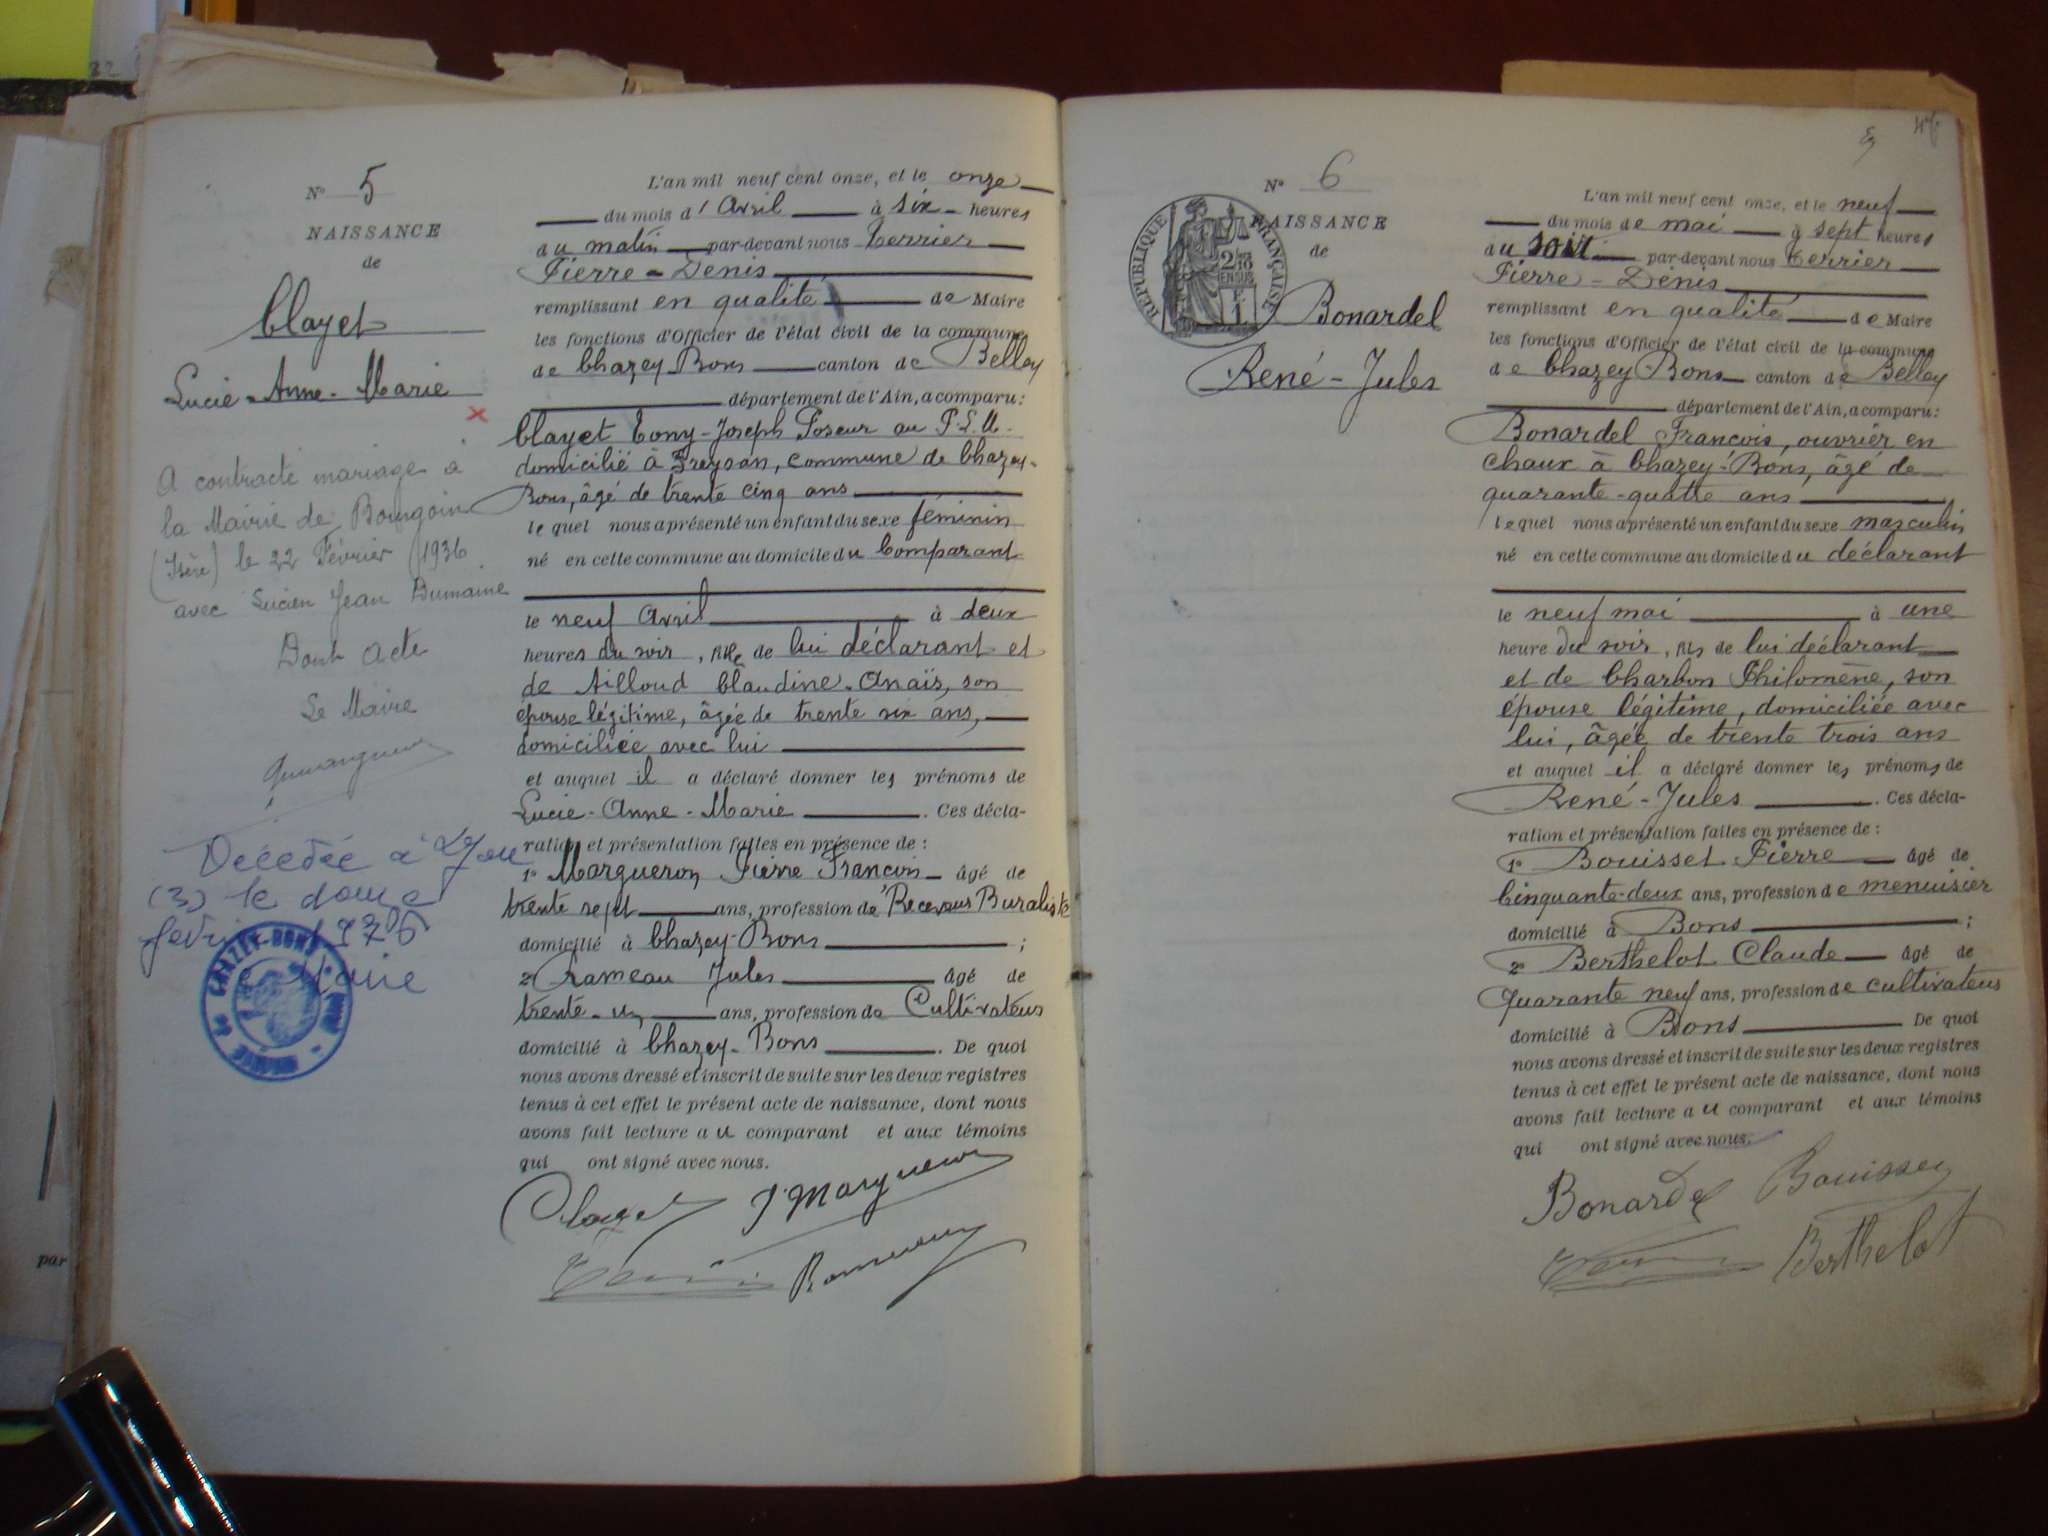 N° 5
NAISSANCE
de
Clayet
Lucie-Anne-Marie
A contracté mariage à
la Mairie de Bourgoin
(Isère) le 22 Février 1936
avec Lucien Jean Dumaine
Dont acte
Le Maire
Décédée à Lyon
(3) le douze
février 1976
Maire
L'an mil neuf cent onze, et le onze
du mois d'Avril à six heures
du matin par-devant nous Terrier
Pierre-Denis
remplissant en qualité de Maire
les fonctions d'Officier de l'état civil de la commune
de Chazey-Bons canton de Belley
département de l'Ain, a comparu :
Clayet Tony-Joseph Poseur au P.L.M.
domicilié à Freysan, commune de Chazey-
Bons, âgé de trente cinq ans
lequel nous a présenté un enfant du sexe féminin
né en cette commune au domicile du Comparant
le neuf Avril à deux
heures du soir, fille de lui déclarant et
de Ailloud Claudine-Anaïs, son
épouse légitime, âgée de trente six ans,
domiciliée avec lui
et auquel il a déclaré donner les prénoms de
Lucie-Anne-Marie. Ces décla-
ration et présentation faites en présence de :
1° Margueron Pierre François âgé de
trente sept ans, profession de Receveur Buraliste
domicilié à Chazey-Bons ;
2° Rameau Jules âgé de
trente-un ans, profession de Cultivateur
domicilié à Chazey-Bons. De quoi
nous avons dressé et inscrit de suite sur les deux registres
tenus à cet effet le présent acte de naissance, dont nous
avons fait lecture au comparant et aux témoins
qui ont signé avec nous.
Clayet P. Margueron
N° 6
NAISSANCE
de
RÉPUBLIQUE FRANÇAISE
2/10
EN SUS
Bonardel
René-Jules
L'an mil neuf cent onze, et le neuf
du mois de mai à sept heures
du soir par-devant nous Terrier
Pierre-Denis
remplissant en qualité de Maire
les fonctions d'Officier de l'état civil de la commune
de Chazey-Bons canton de Belley
département de l'Ain, a comparu :
Bonardel François, ouvrier en
chaux à Chazey-Bons, âgé de
quarante-quatre ans
lequel nous a présenté un enfant du sexe masculin
né en cette commune au domicile du déclarant
le neuf mai à une
heure du soir, fils de lui déclarant
et de Charbon Philomène, son
épouse légitime, domiciliée avec
lui, âgée de trente trois ans
et auquel il a déclaré donner les prénoms de
René-Jules. Ces décla-
ration et présentation faites en présence de :
1° Bouisset Pierre âgé de
Cinquante-deux ans, profession de menuisier
domicilié à Bons ;
2° Berthelot Claude âgé de
Quarante neuf ans, profession de cultivateur
domicilié à Bons. De quoi
nous avons dressé et inscrit de suite sur les deux registres
tenus à cet effet le présent acte de naissance, dont nous
avons fait lecture au comparant et aux témoins
qui ont signé avec nous.
Bonardel Bouisset
Berthelot
par